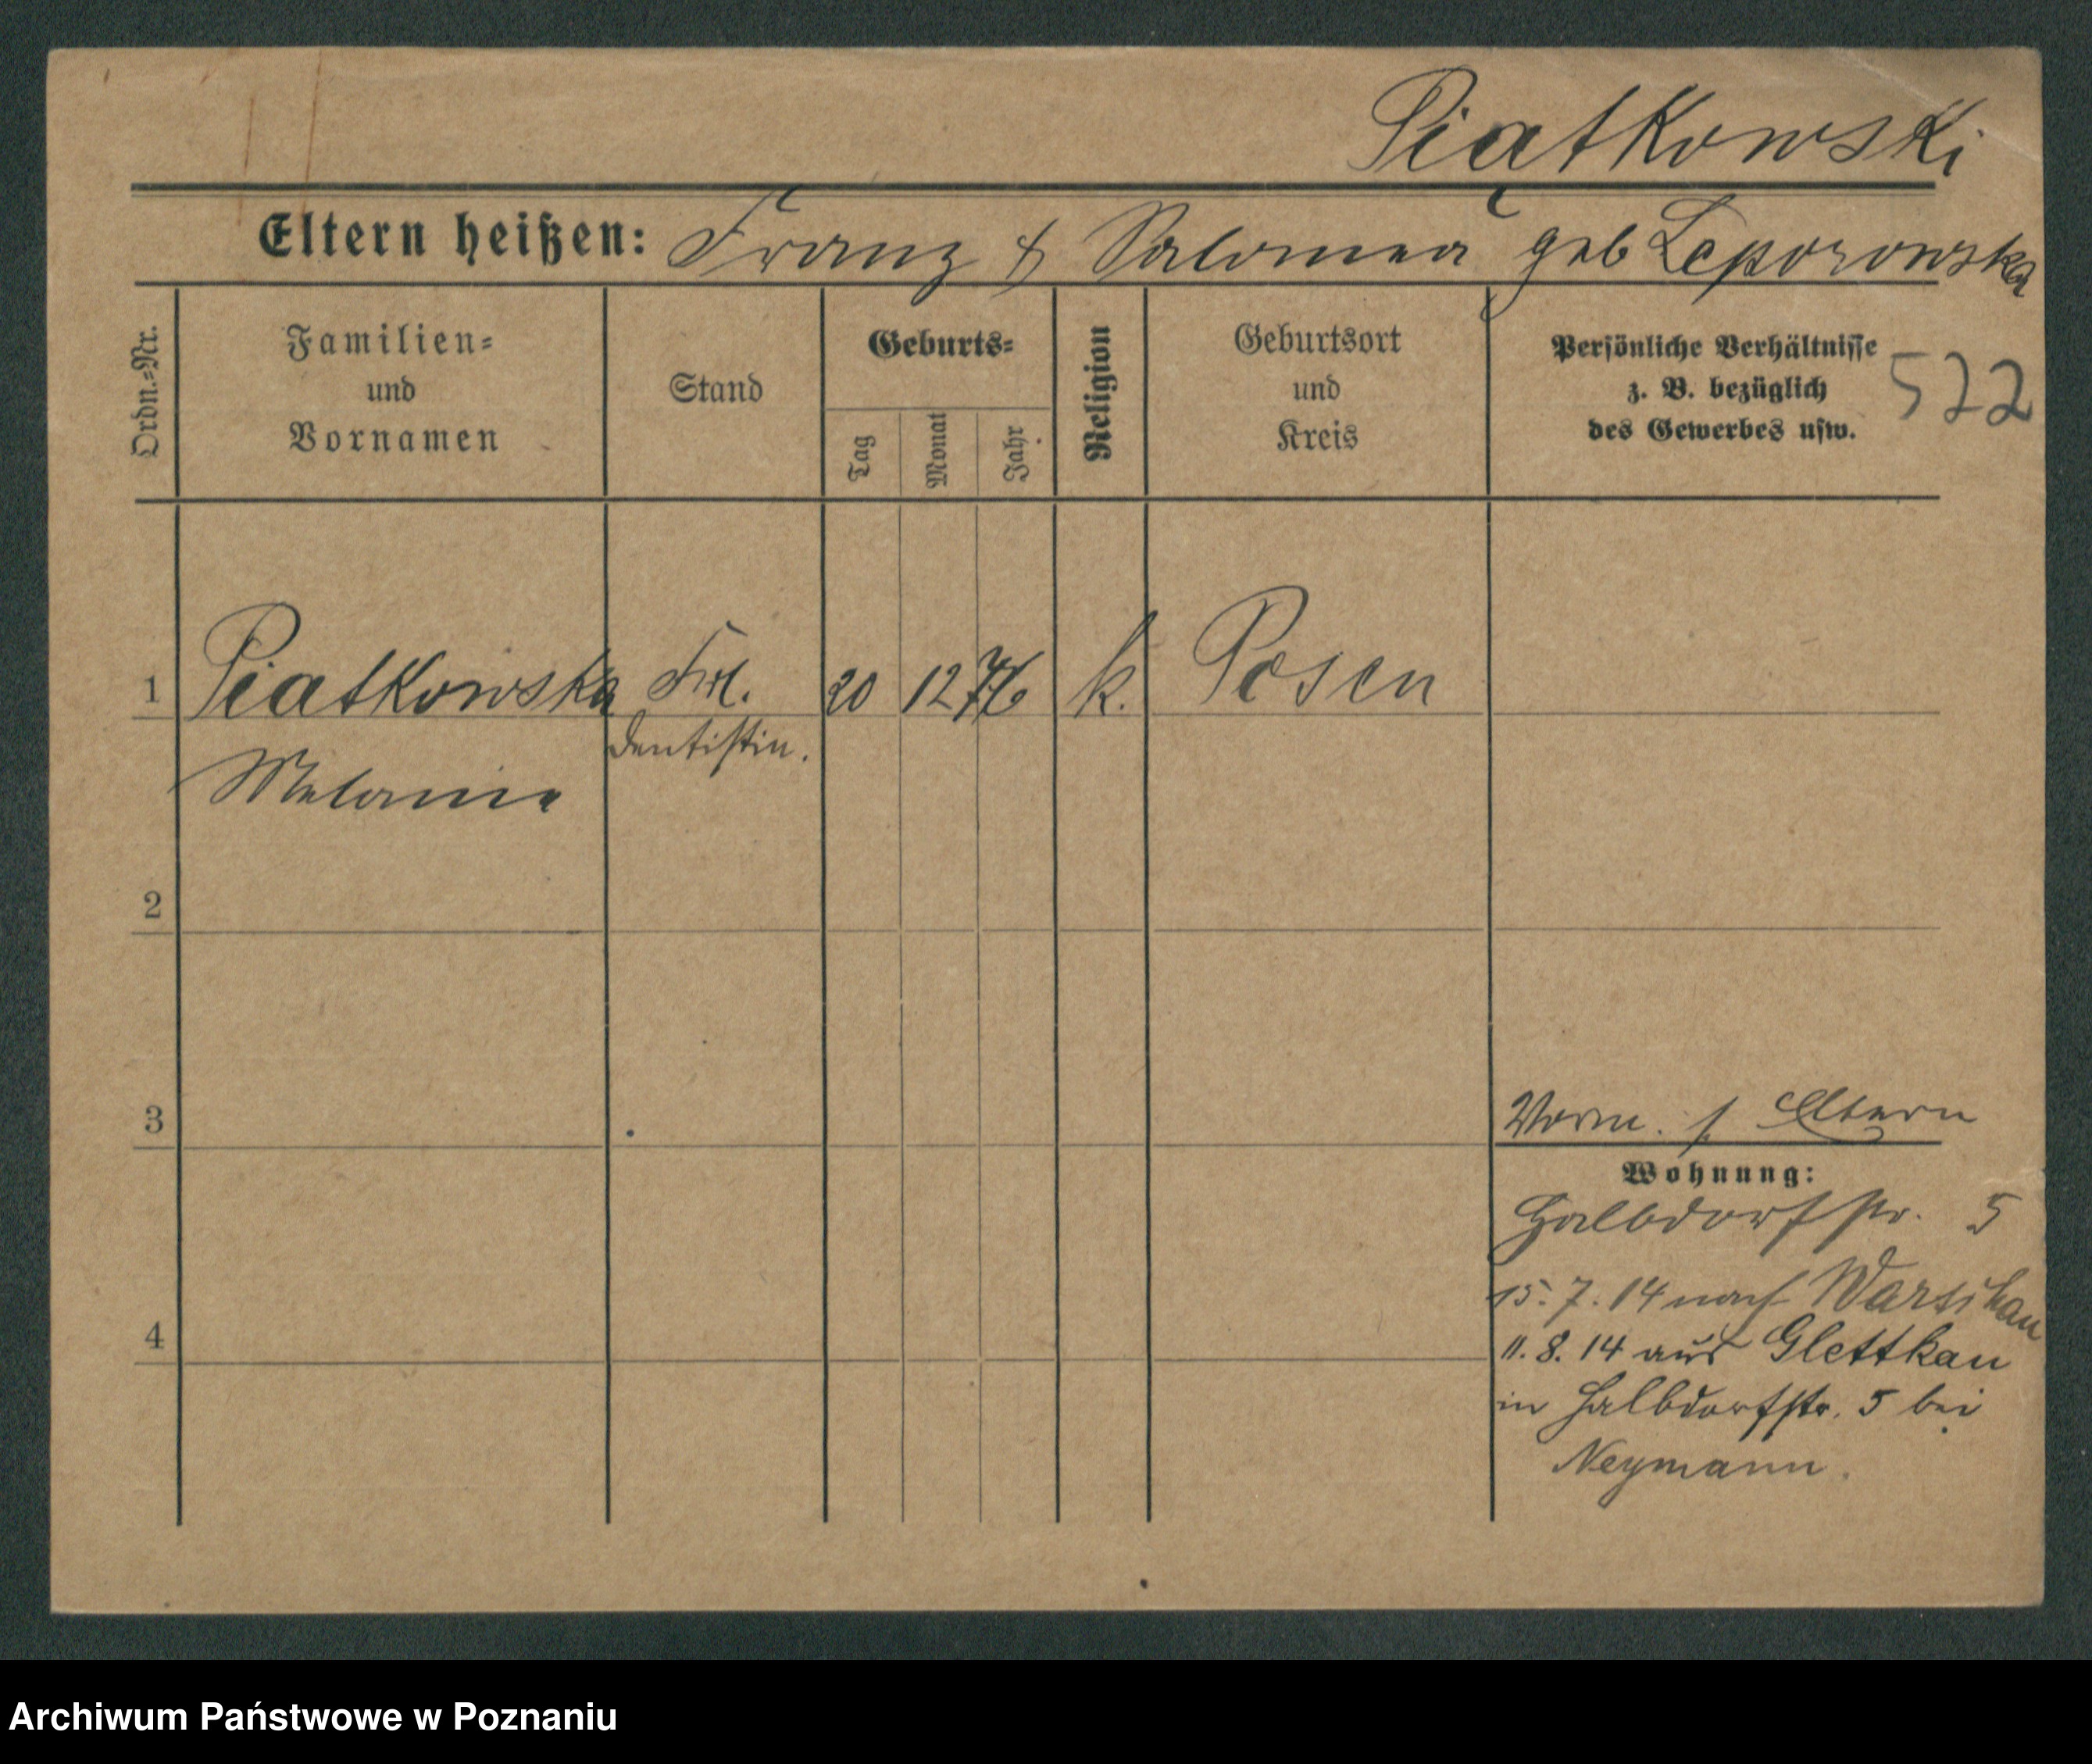 Piątkowski
Eltern heißen: Franz & Salomea geb Leporowska
Ordn.=Nr.
Familien=
und
Vornamen
Stand
Geburts=
Tag
Monat
Jahr
Religion
Geburtsort
und
Kreis
Persönliche Verhältnisse
z. B. bezüglich
des Gewerbes usw.
522
1 Piatkowska Frl. 20 12 76 k. Posen
Dentistin.
Melanie
2
3
Vorm. s. Eltern
Wohnung:
Halbdorfstr. 5
15.7.14 nach Warschau
4
11.8.14 aus Glettkau
in Halbdorfstr. 5 bei
Neymann.
Archiwum Państwowe w Poznaniu